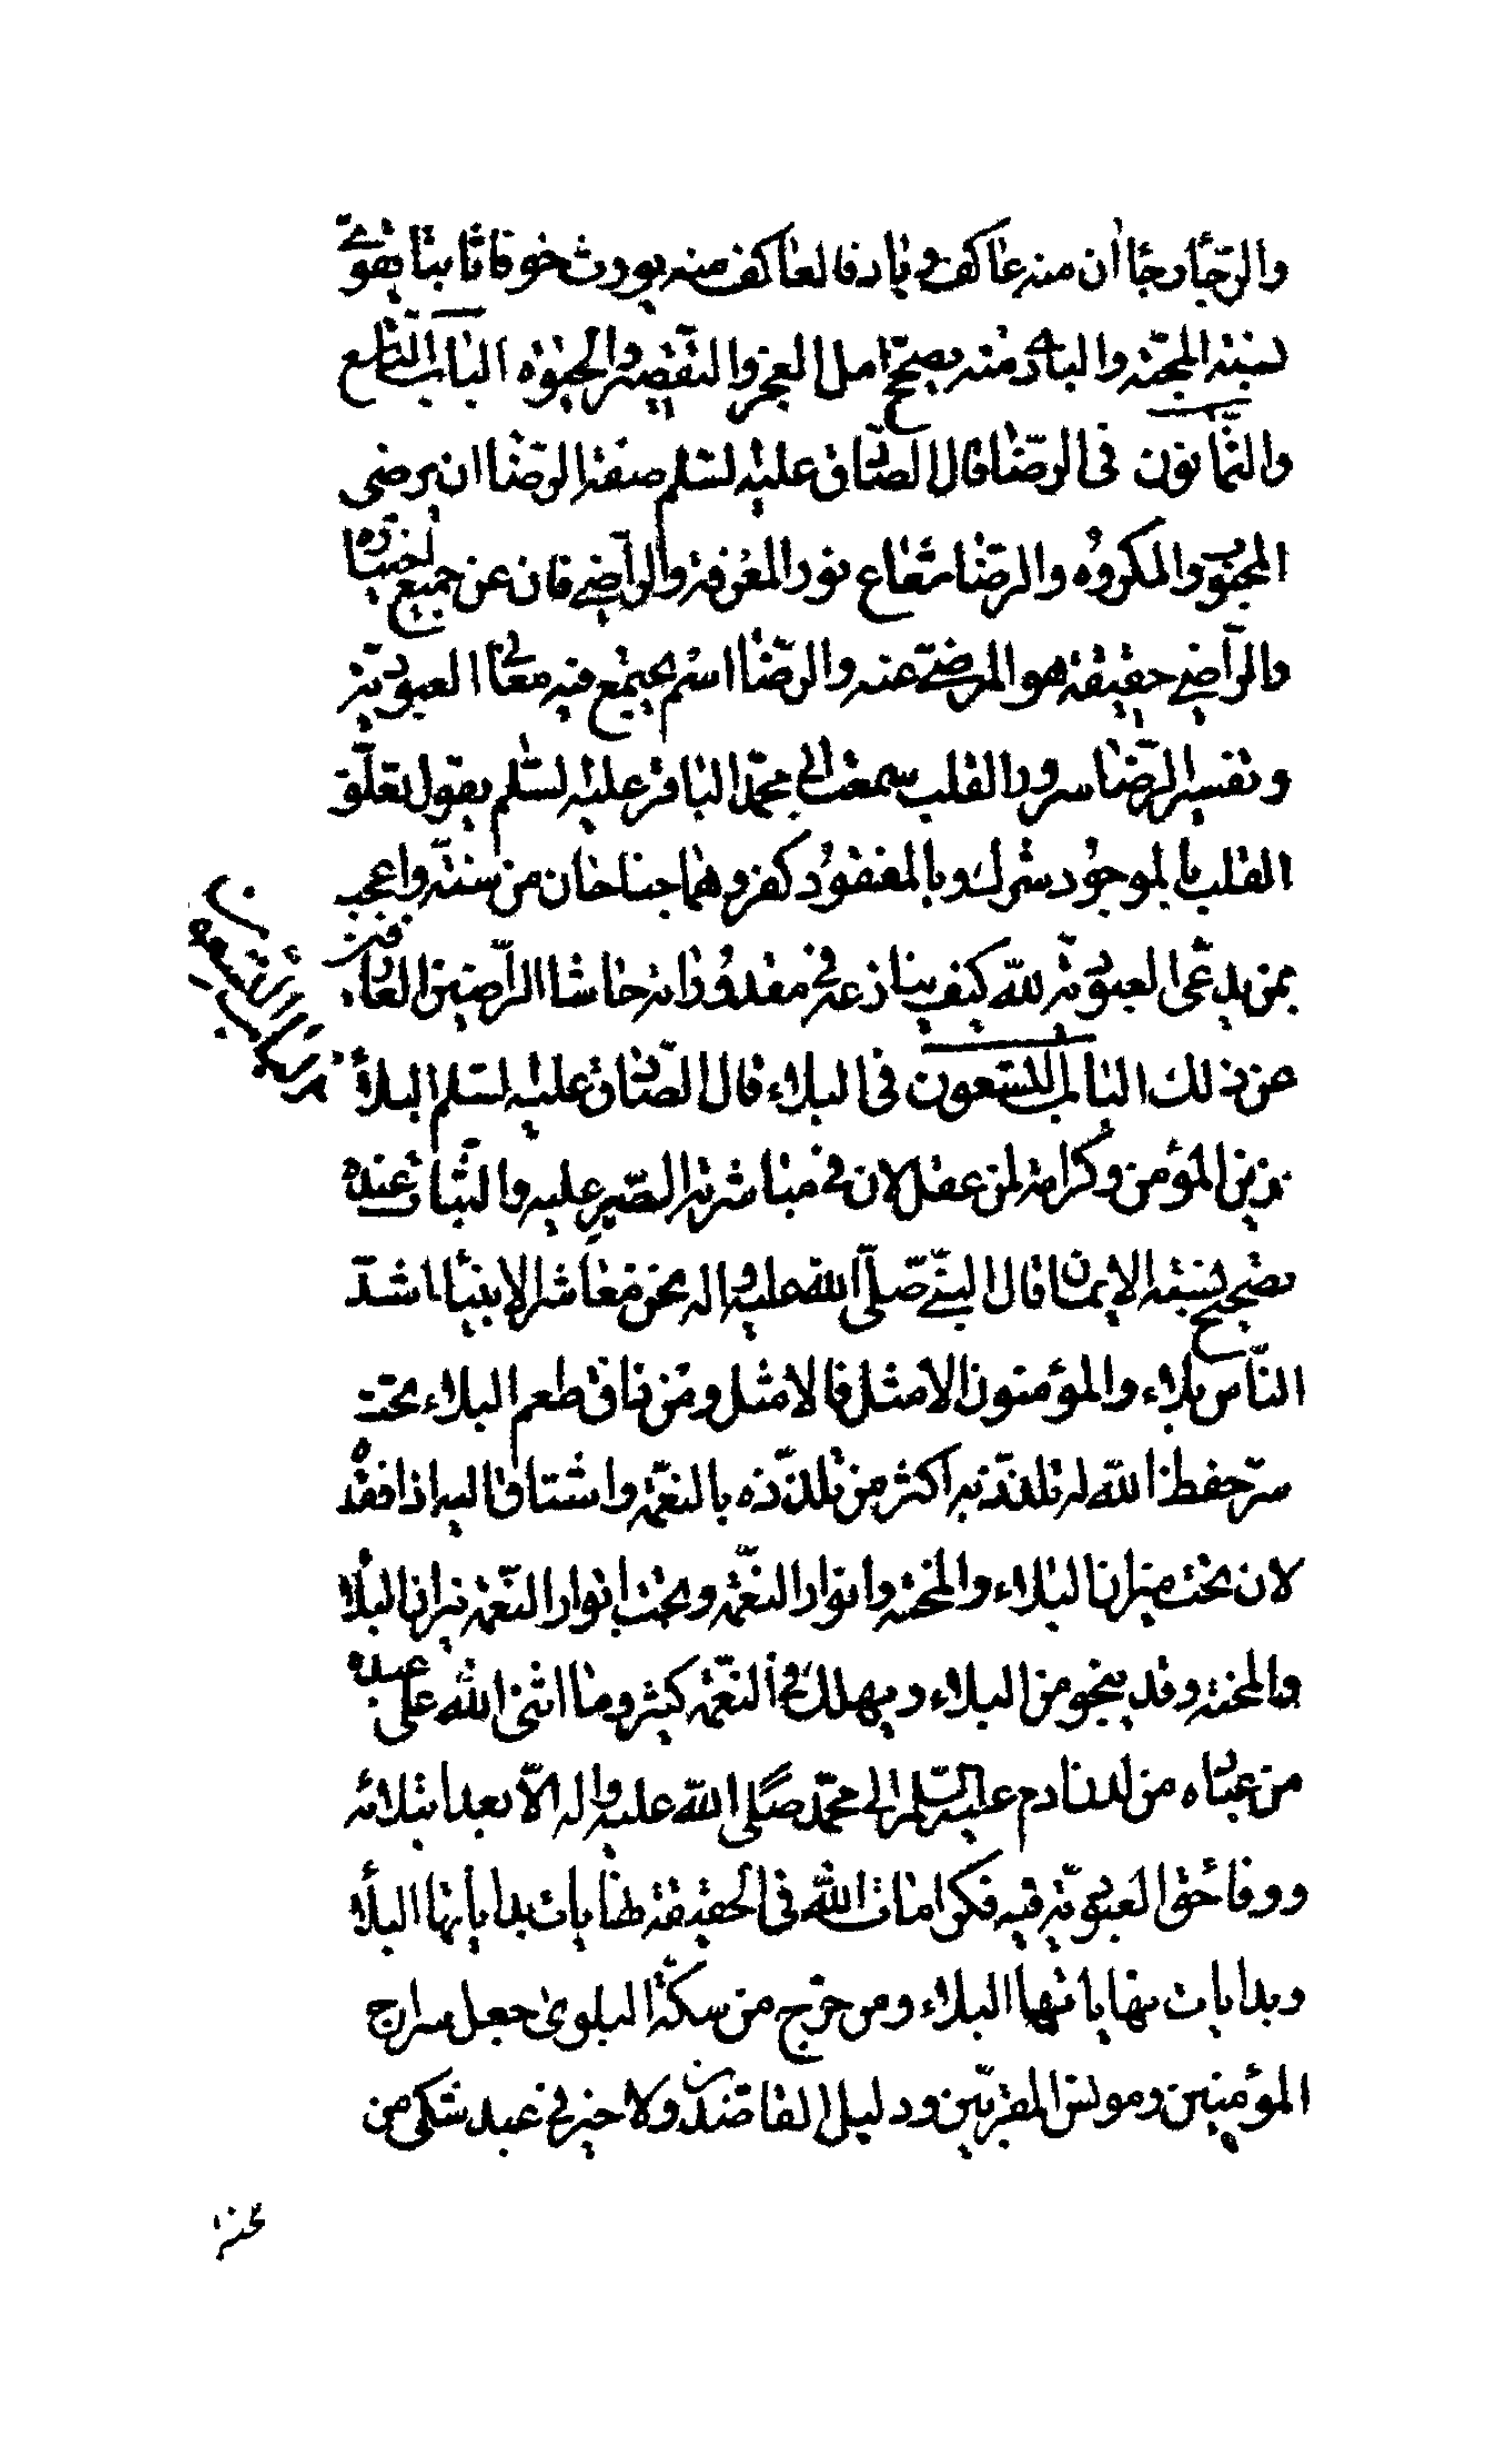 والرّجاء رجاءان منه عاكف وباد فالعاكف منه يورث خوفا ثابتا يقوّي
نسبة المحبّة والبادي منه يصحّح امل العجز والتقصير والحيوة الباب التاسع
والثمانون في الرّضا قال الصّادق عليه السّلم صفة الرّضا ان يرضى
المحبوب والمكروه والرّضا شعاع نور المعرفة والرّاضي فان عن جميع اختياره
والرّاضي حقيقة هو المرضيّ عنه والرّضا اسم يجتمع فيه معاني العبوديّة
وتفسير الرّضا سرور القلب سمعت ابي محمّد الباقر عليه السّلم يقول تعلّق
القلب بالموجود شرك وبالمفقود كفر وهما جناحان من سنته واعجب
بمن يدّعي العبوديّة للّه كيف ينازعه في مقدوراته حاشا الرّاضين العارفين
عن ذلك الباب التسعون في البلاء قال الصّادق عليه السّلم البلاء
زين المؤمن وكرامة لمن عقل لان في مباشرته الصّبر عليه والثبات عنده
تصحيح نسبة الايمان قال النبيّ صلّى اللّه عليه واله نحن معاشر الانبياء اشدّ
النّاس بلاء والمؤمنون الامثل فالامثل ومن ذاق طعم البلاء تحت
ستر حفظ اللّه له تلذّذ به اكثر من تلذّذه بالنعّمة واشتاق اليه اذا فقده
لان تحت نيران البلاء والمحنة انوار النعّمة وتحت انوار النّعمة نيران البلاء
والمحنة وقد ينجو من البلاء ويهلك في النّعمة كثير وما اثنى اللّه على عبده
من عباده من لدن ادم عليه السّلم الى محمّد صلّى اللّه عليه واله الاّ بعد ابتلائه
ووفاء حق العبوديّة فيه فكرامات اللّه في الحقيقة نهايات بداياتها البلاء
وبدايات نهاياتها البلاء ومن خرج من سكّة البلوى جعل سراج
المؤمنين ومونس المقرّبين ودليل القاصدين ولا خير في عبد شكى من
محنة